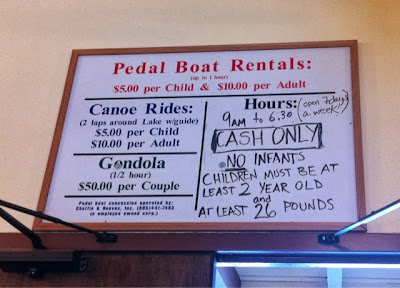 Pedal Boat Rentals:
(up to 1 hour)
$5.00 per Child & $10.00 per Adult
Canoe Rides:
(2 laps around Lake w/guide)
$5.00 per Child
$10.00 per Adult
Gondola
(1/2 hour)
$50.00 per Couple
Pedal boat concession operated by:
Chuttle & Reeves, Inc. (805)441-7403
(a employee owned corp.)
Hours: (open 7 days a week)
9AM to 6:30
CASH ONLY
NO INFANTS
CHILDREN MUST BE AT
LEAST 2 YEAR OLD
and
AT LEAST 26 POUNDS